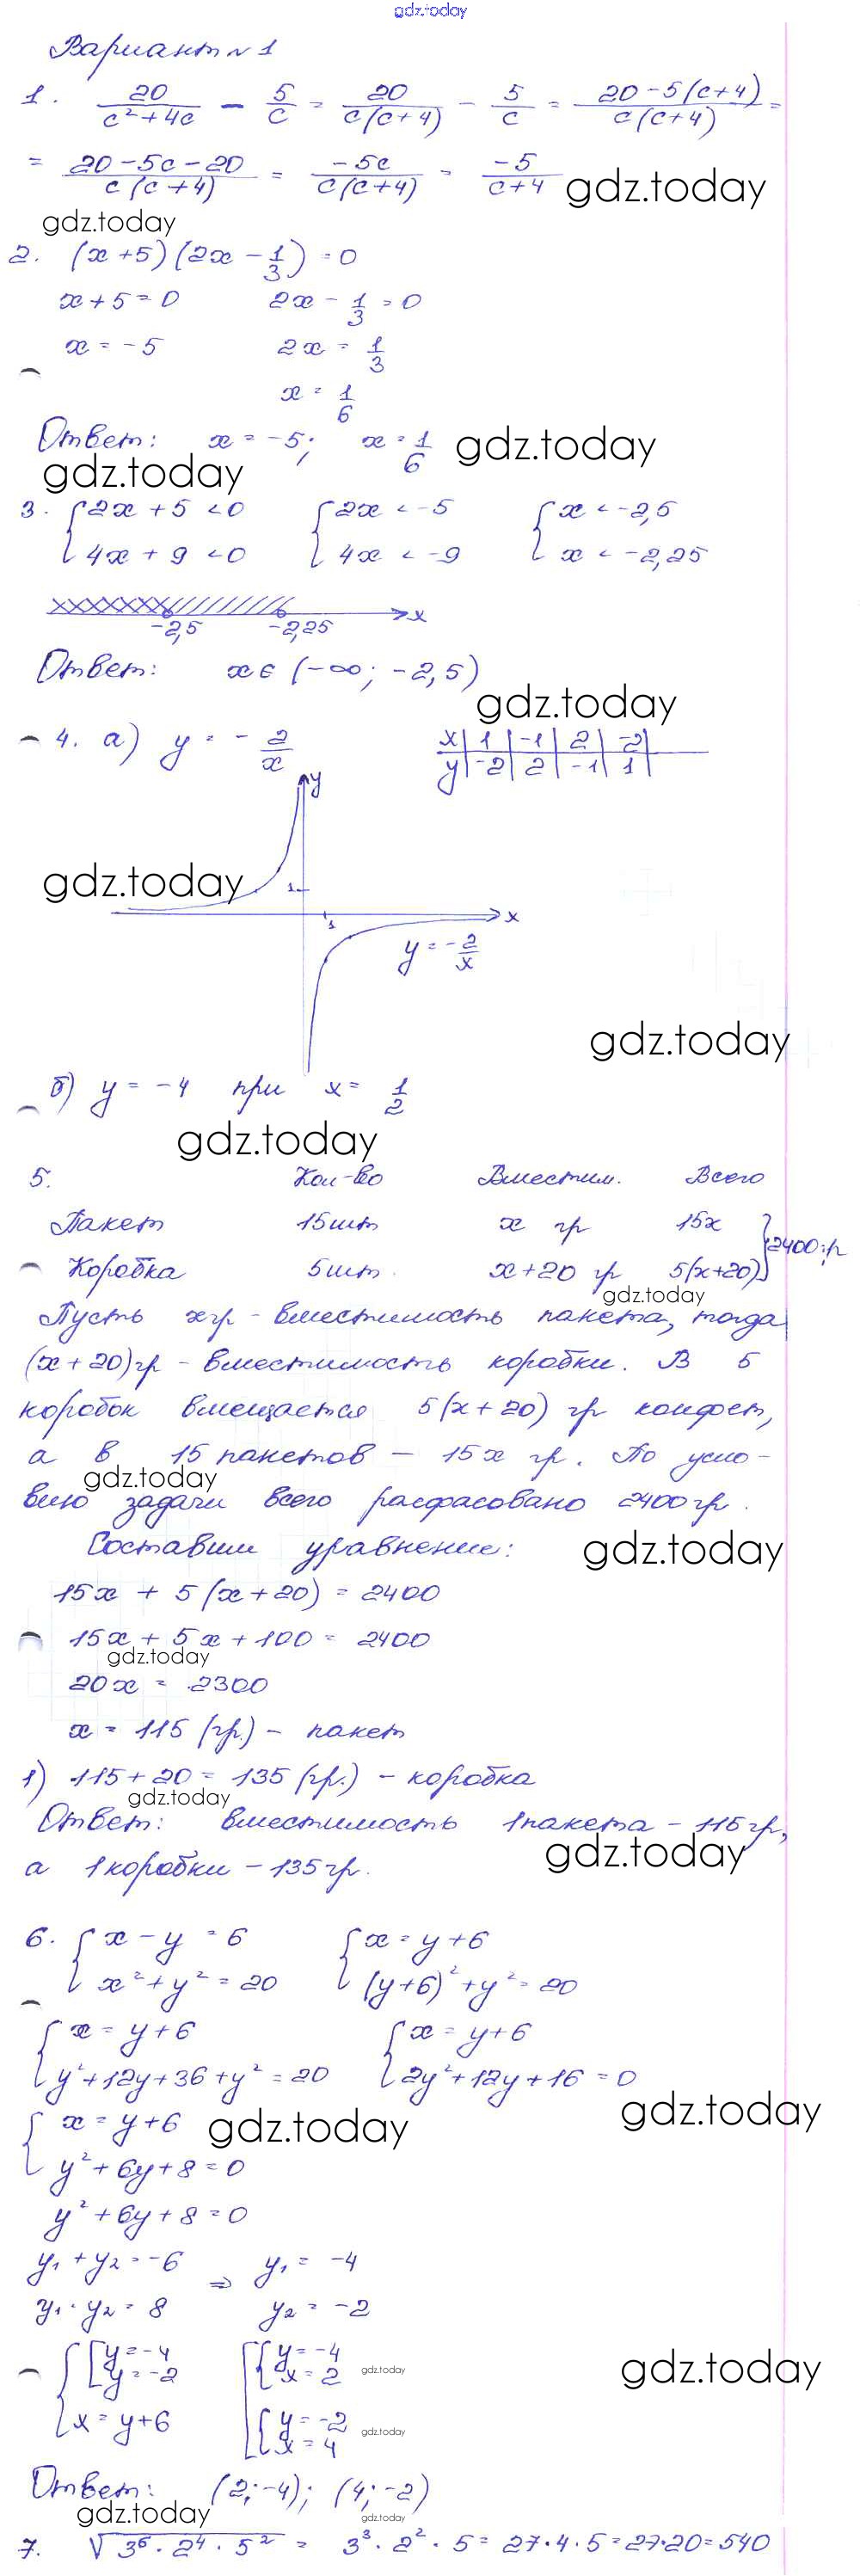 gdz.today
Вариант №1
1. 20/(c²+4c) − 5/c = 20/(c(c+4)) − 5/c = (20−5(c+4))/(c(c+4)) =
= (20−5c−20)/(c(c+4)) = −5c/(c(c+4)) = −5/(c+4) gdz.today
gdz.today
2. (x+5)(2x − 1/3) = 0
x+5=0 2x − 1/3 = 0
x = −5 2x = 1/3
x = 1/6
Ответ: x = −5; x = 1/6 gdz.today
gdz.today
3. { 2x + 5 < 0 { 2x < −5 { x < −2,5
4x + 9 < 0 4x < −9 x < −2,25
−2,5 −2,25 x
Ответ: x ∈ (−∞; −2,5)
gdz.today
4. а) y = − 2/x
x | 1 | −1 | 2 | −2 |
y | −2 | 2 | −1 | 1 |
y
gdz.today 1
1 x
y = − 2/x
gdz.today
б) y = −4 при x = 1/2
gdz.today
5. Кол-во Вместим. Всего
Пакет 15шт x гр 15x
} 2400 гр
Коробка 5шт. x+20 гр 5(x+20)
gdz.today
Пусть x гр - вместимость пакета, тогда
(x+20)гр - вместимость коробки. В 5
коробок вмещается 5(x+20) гр конфет,
а в 15 пакетов − 15x гр. По усло-
gdz.today
вию задачи всего расфасовано 2400 гр.
Составим уравнение: gdz.today
15x + 5(x+20) = 2400
15x + 5x + 100 = 2400
gdz.today
20x = 2300
x = 115 (гр.) − пакет
1) 115+20 = 135 (гр.) − коробка
gdz.today
Ответ: вместимость 1 пакета − 115 гр,
gdz.today
а 1 коробки − 135 гр.
6. { x − y = 6 { x = y+6
x² + y² = 20 (y+6)² + y² = 20
{ x = y+6 { x = y+6
y²+12y+36+y² = 20 2y²+12y+16 = 0
gdz.today
{ x = y+6 gdz.today
y²+6y+8=0
y²+6y+8=0
y₁ + y₂ = −6 ⇒ y₁ = −4
y₁ · y₂ = 8 y₂ = −2
{ [ y = −4 [ { y = −4
y = −2 x = 2 gdz.today gdz.today
x = y+6 { y = −2 gdz.today
x = 4
Ответ: (2; −4); (4; −2)
gdz.today gdz.today
7. √(3⁶ · 2⁴ · 5²) = 3³ · 2² · 5 = 27·4·5 = 27·20 = 540